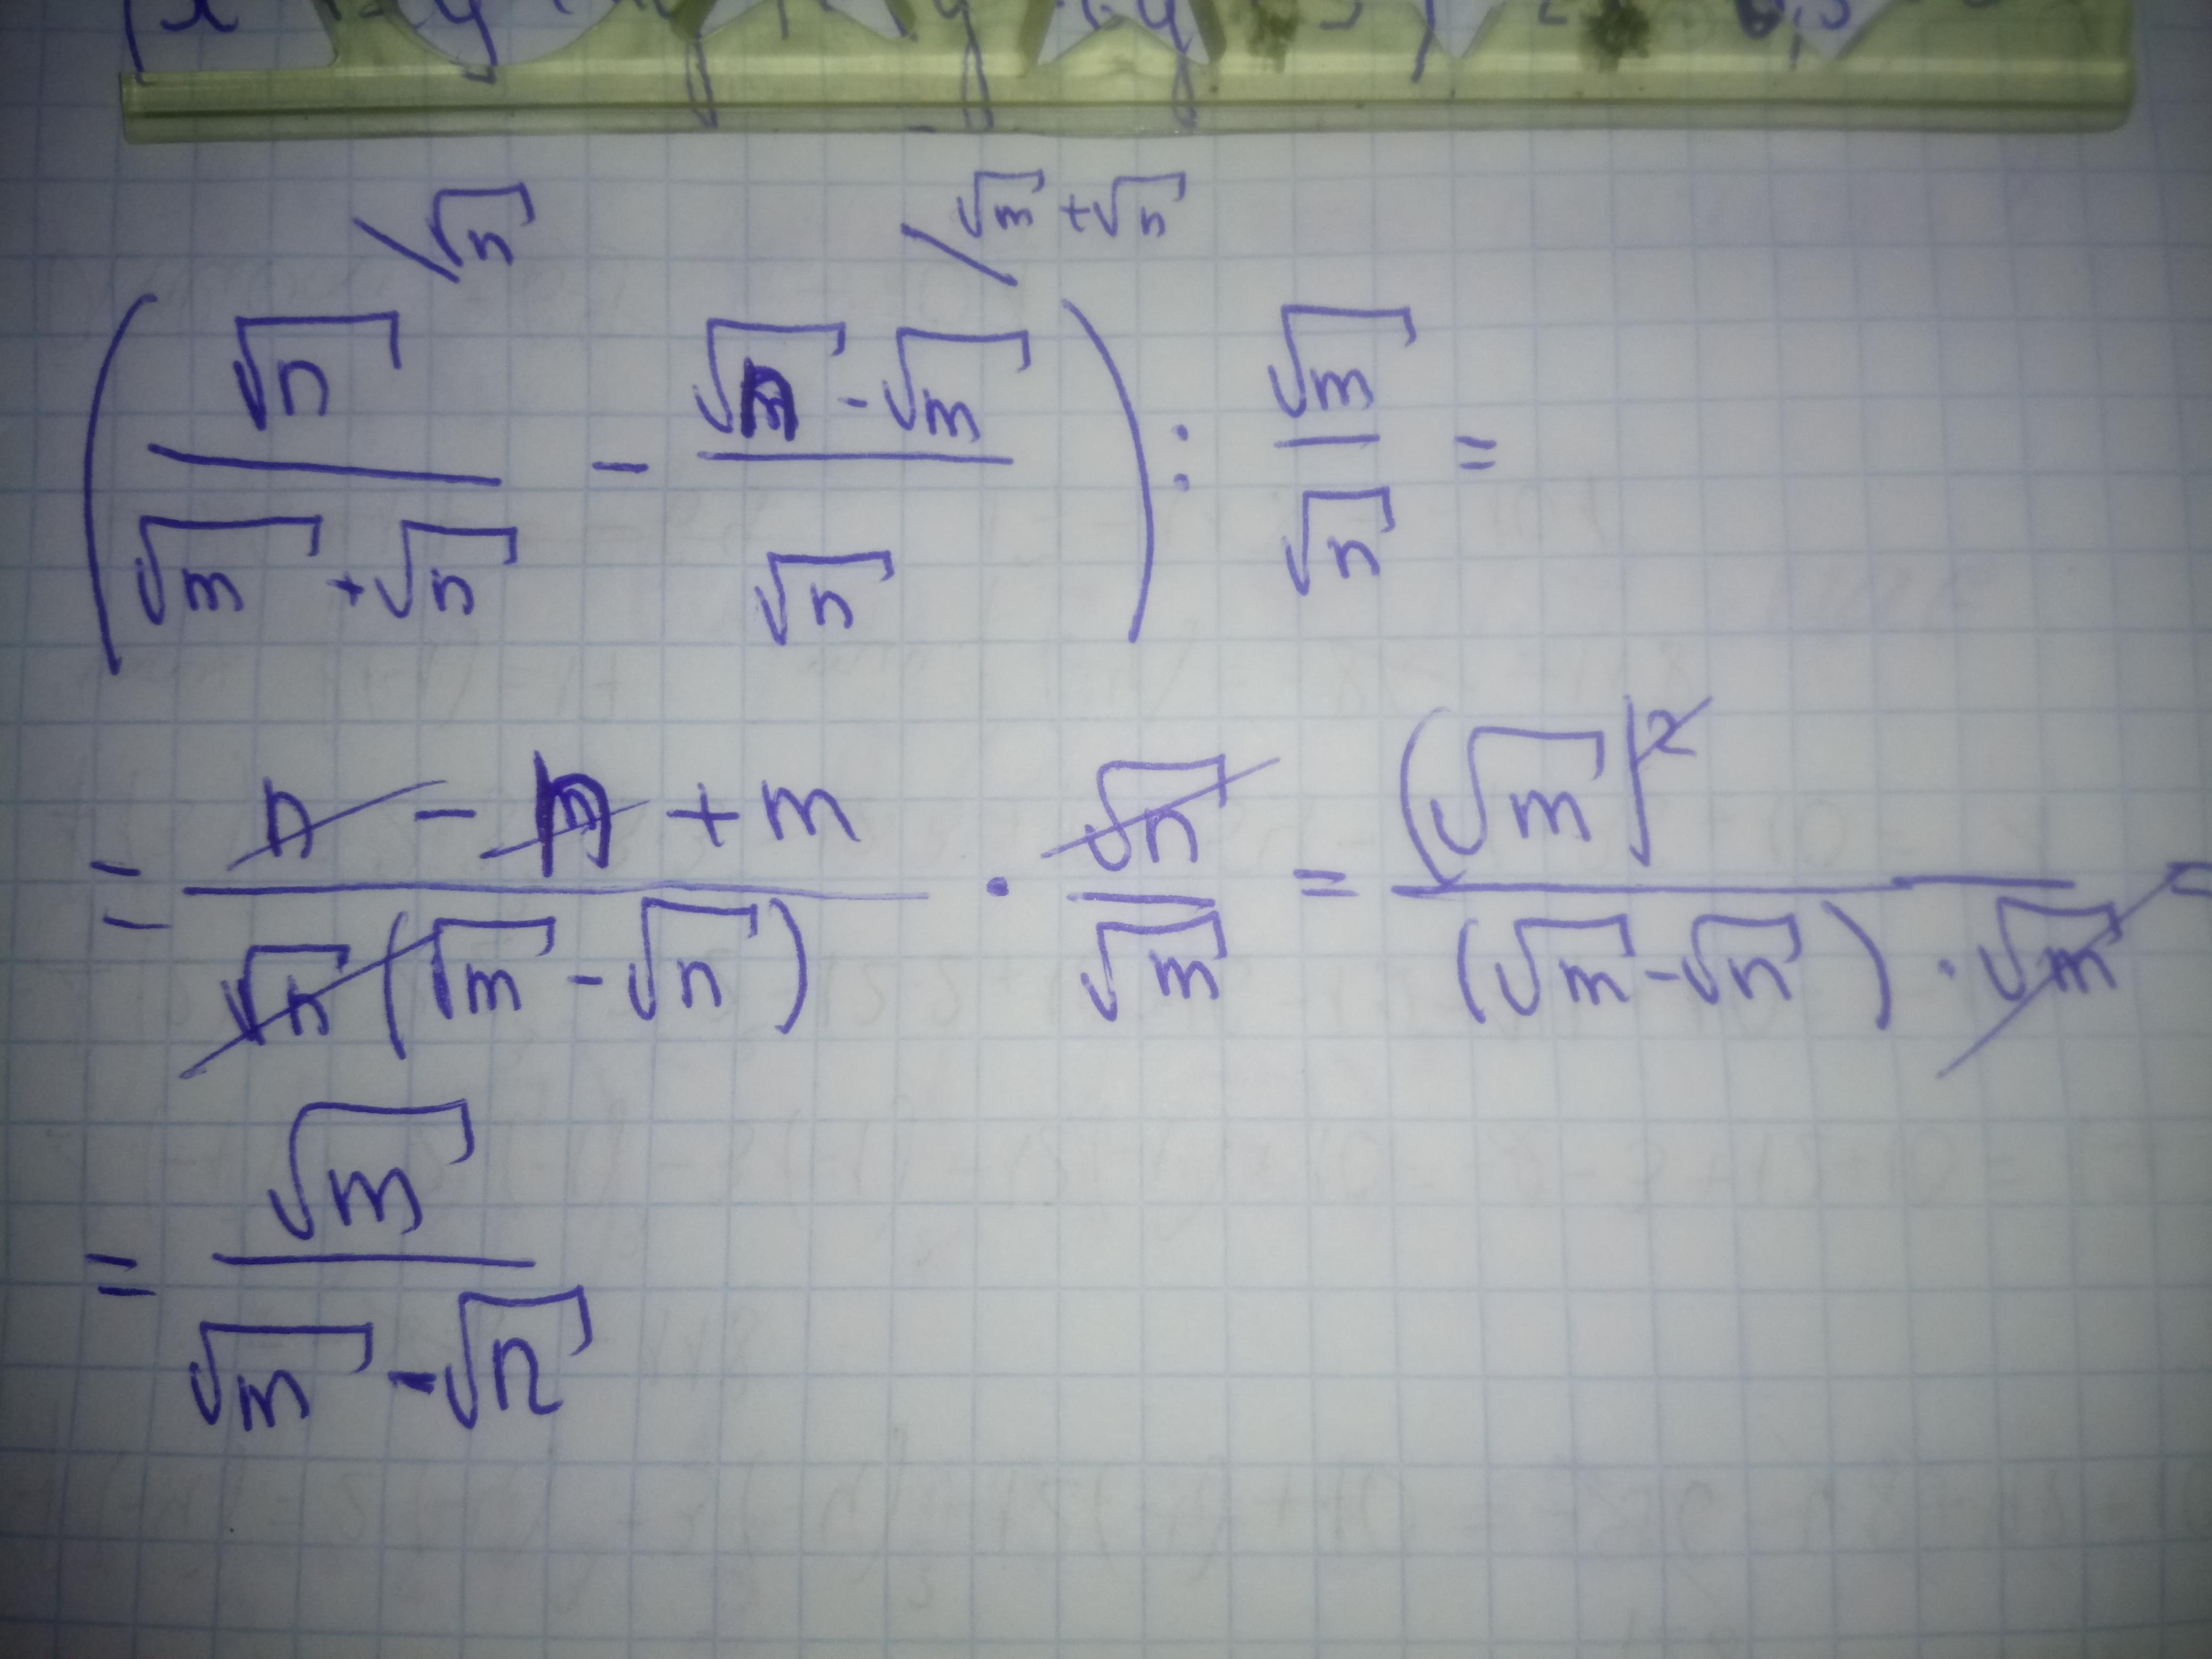 \√n \√m + √n
(√n / (√m + √n) - (√n - √m) / √n) : √m / √n =
= (n - n + m) / (√n (√m - √n)) · √n / √m = (√m)² / ((√m - √n) · √m) =
= √m / (√m - √n)